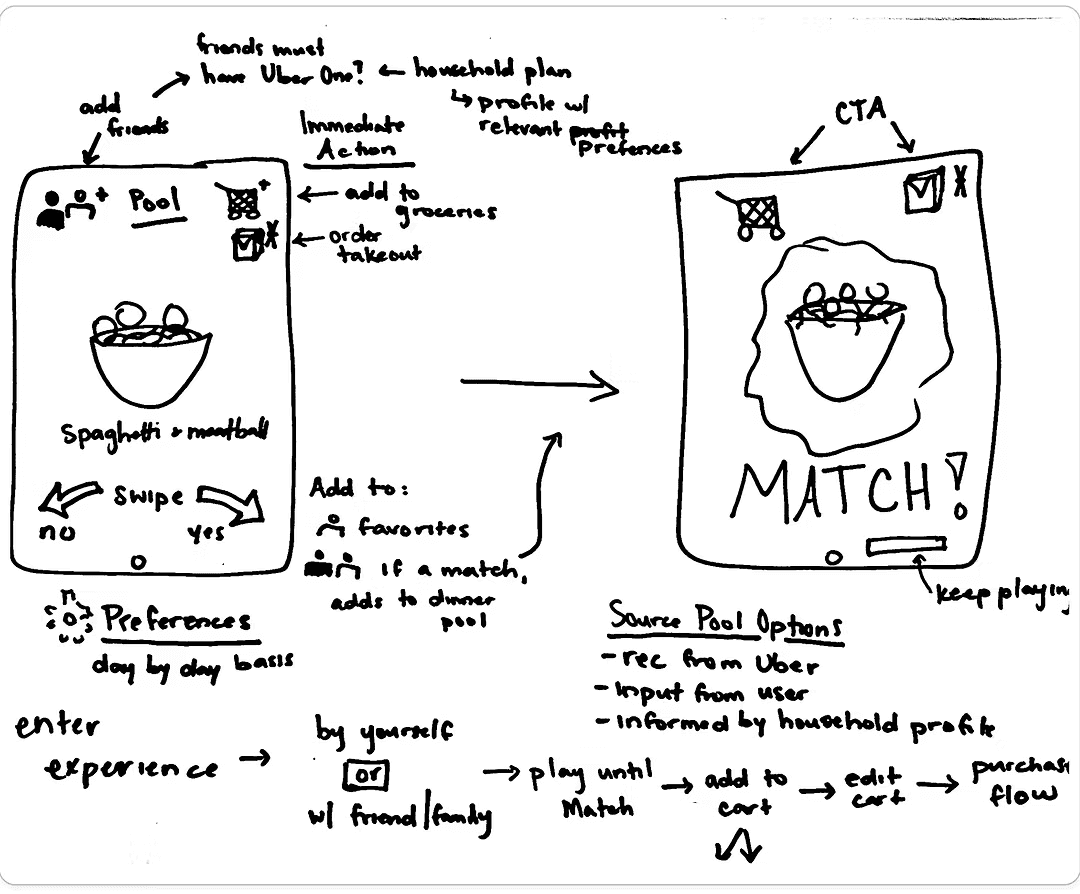 friends must
have Uber One? ← household plan
↳ profile w/
relevant profit
prefences
add
friends
Immediate
Action
← add to
groceries
← order
takeout
Pool
Spaghetti + meatball
swipe
no
yes
Add to:
favorites
if a match,
adds to dinner
pool
Preferences
day by day basis
CTA
MATCH!
keep playing
Source Pool Options
- rec from Uber
- Input from user
- Informed by household profile
enter
experience →
by yourself
or
w/ friend/family
→ play until
Match
→ add to
cart
→ edit
cart
→ purchas
flow